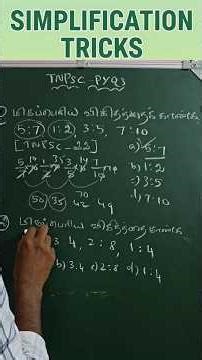 SIMPLIFICATION
TRICKS
TNPSC - PYQs
மிகப்பெரிய விகிதத்தைக் காண்க
5:7, 1:2, 3:5, 7:10
[TNPSC-22] a) 5:7
b) 1:2
c) 3:5
d) 7:10
50 35 42 49
70
மிகப்பெரிய விகிதத்தை காண்க
3:4, 2:8, 1:4
b) 3:4 c) 2:8 d) 1:4